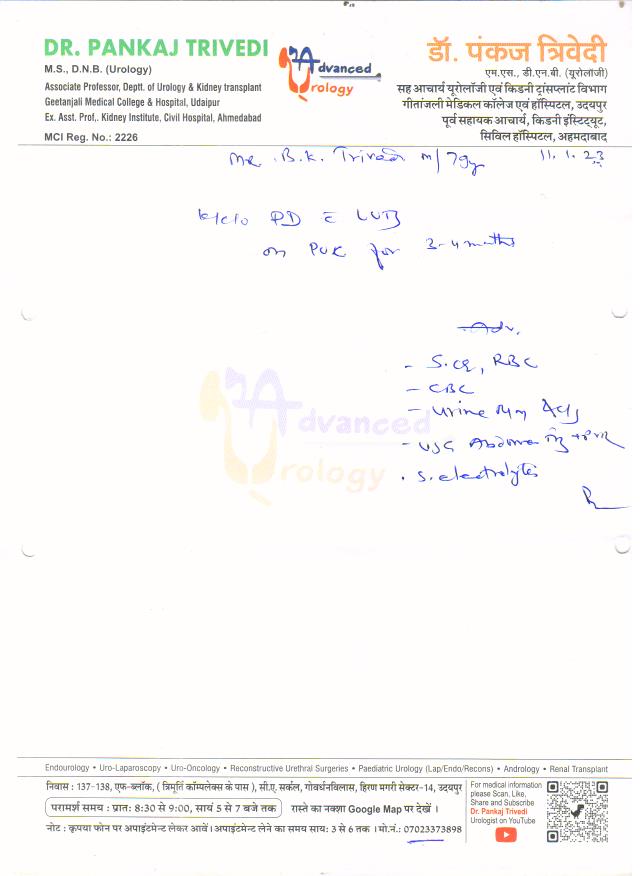 DR. PANKAJ TRIVEDI
M.S., D.N.B. (Urology)
Associate Professor, Deptt. of Urology & Kidney transplant
Geetanjali Medical College & Hospital, Udaipur
Ex. Asst. Prof., Kidney Institute, Civil Hospital, Ahmedabad
MCI Reg. No.: 2226
Advanced
Urology
डॉ. पंकज त्रिवेदी
एम.एस., डी.एन.बी. (यूरोलॉजी)
सह आचार्य यूरोलॉजी एवं किडनी ट्रांसप्लांट विभाग
गीतांजली मेडिकल कॉलेज एवं हॉस्पिटल, उदयपुर
पूर्व सहायक आचार्य, किडनी इंस्टिट्यूट,
सिविल हॉस्पिटल, अहमदाबाद
Mr. B.K. Trivedi m/79y 11.1.23
PD c̄ LUTS
on PUC for 3-4 months
Adv.
- S.Cr, RBC
- CBC
- Urine
- USG Abdomen +PVR
. S. electrolytes
Advanced
Urology
Endourology • Uro-Laparoscopy • Uro-Oncology • Reconstructive Urethral Surgeries • Paediatric Urology (Lap/Endo/Recons) • Andrology • Renal Transplant
निवास : 137-138, एफ-ब्लॉक, ( त्रिमूर्ति कॉम्पलेक्स के पास ), सी.ए. सर्कल, गोवर्धनविलास, हिरण मगरी सेक्टर-14, उदयपुर
परामर्श समय : प्रात: 8:30 से 9:00, सायं 5 से 7 बजे तक रास्ते का नक्शा Google Map पर देखें ।
नोट : कृपया फोन पर अपाइंटमेन्ट लेकर आवें । अपाइंटमेन्ट लेने का समय साय: 3 से 6 तक । मो.नं.: 07023373898
For medical information
please Scan, Like,
Share and Subscribe
Dr. Pankaj Trivedi
Urologist on YouTube